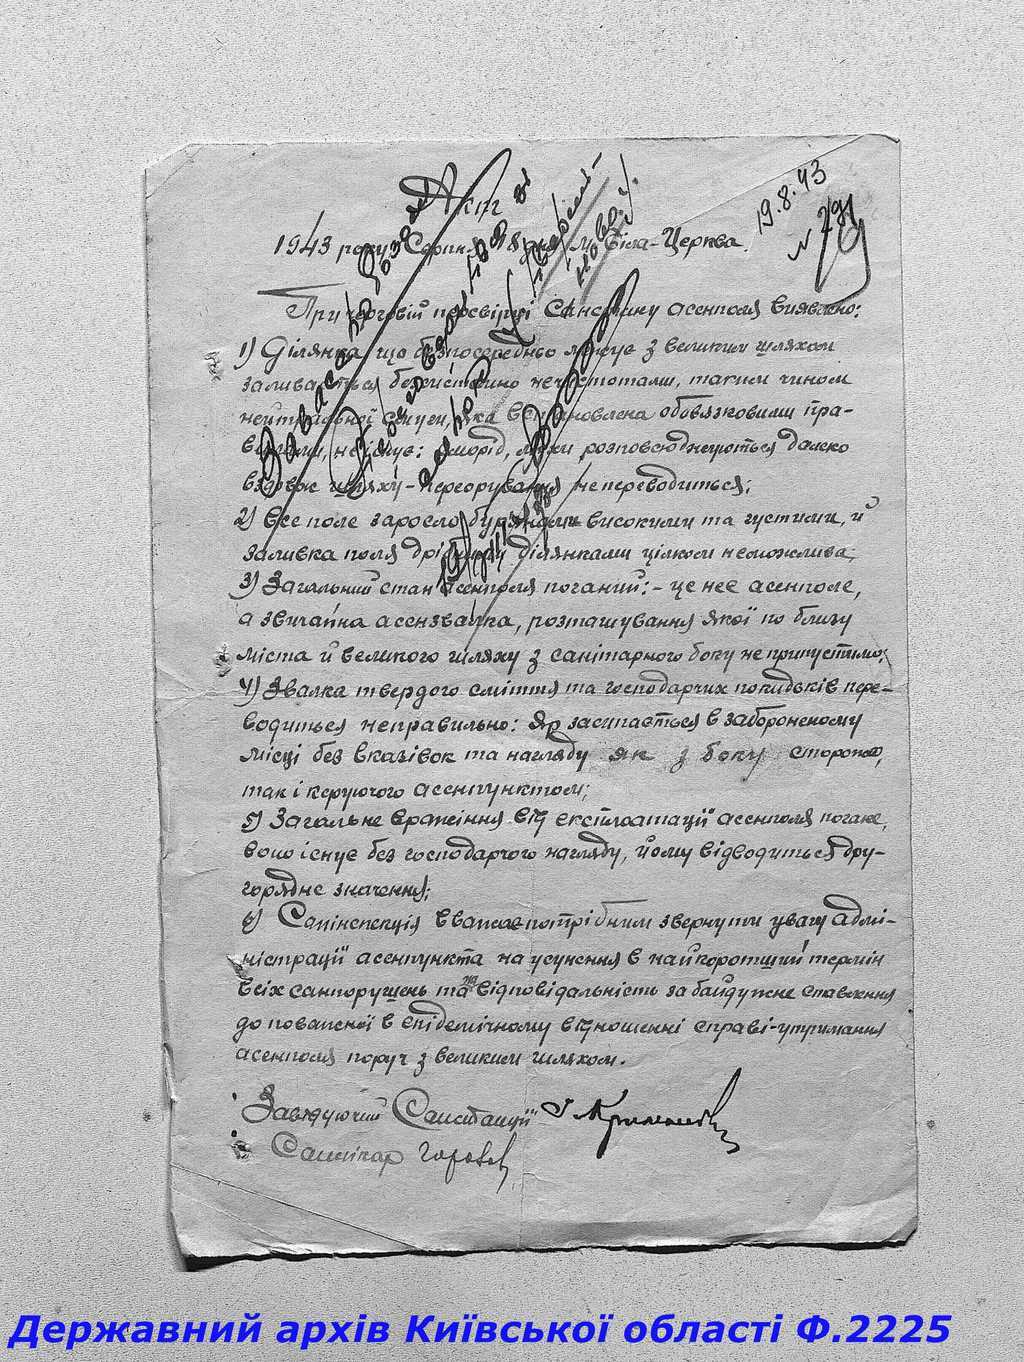 Акт
19.8.43
N 291
1943 року Серпня 18 дня м. Біла-Церква.
При черговій перевірці санстану асенполя виявлено:
1) Ділянка, що безпосередньо межує з великим шляхом
заливається безсистемно нечистотами, таким чином
нейтральної смуги, яка встановлена обов'язковими пра-
вилами, не існує: сморід, мухи розповсюджуються далеко
вздовж шляху - переорування не переводиться;
2) Все поле заросло бур'янами високими та густими, й
заливка поля дрібними ділянками цілком неможлива;
3) Загальний стан асенполя поганий: - це не є асенполе,
а звичайна асензвалка, розташування якої по близу
міста й великого шляху з санітарного боку не припустимо;
4) Звалка твердого сміття та господарчих покидьків пере-
водиться неправильно: Яр засипається в забороненому
місці без вказівок та нагляду як з боку сторожа,
так і керуючого асенпунктом;
5) Загальне враження від експлоатації асенполя погане,
воно існує без господарчого нагляду, йому відводиться дру-
горядне значення;
6) Санінспекція вважає потрібним звернути увагу адмі-
ністрації асенпункта на усунення в найкоротший термін
всіх санпорушень та на відповідальність за байдужне ставлення
до поважної в епідемічному відношенні справі - утримання
асенполя поруч з великим шляхом.
Завідуючий Санстанції
Санлікар
Державний архів Київської області Ф.2225